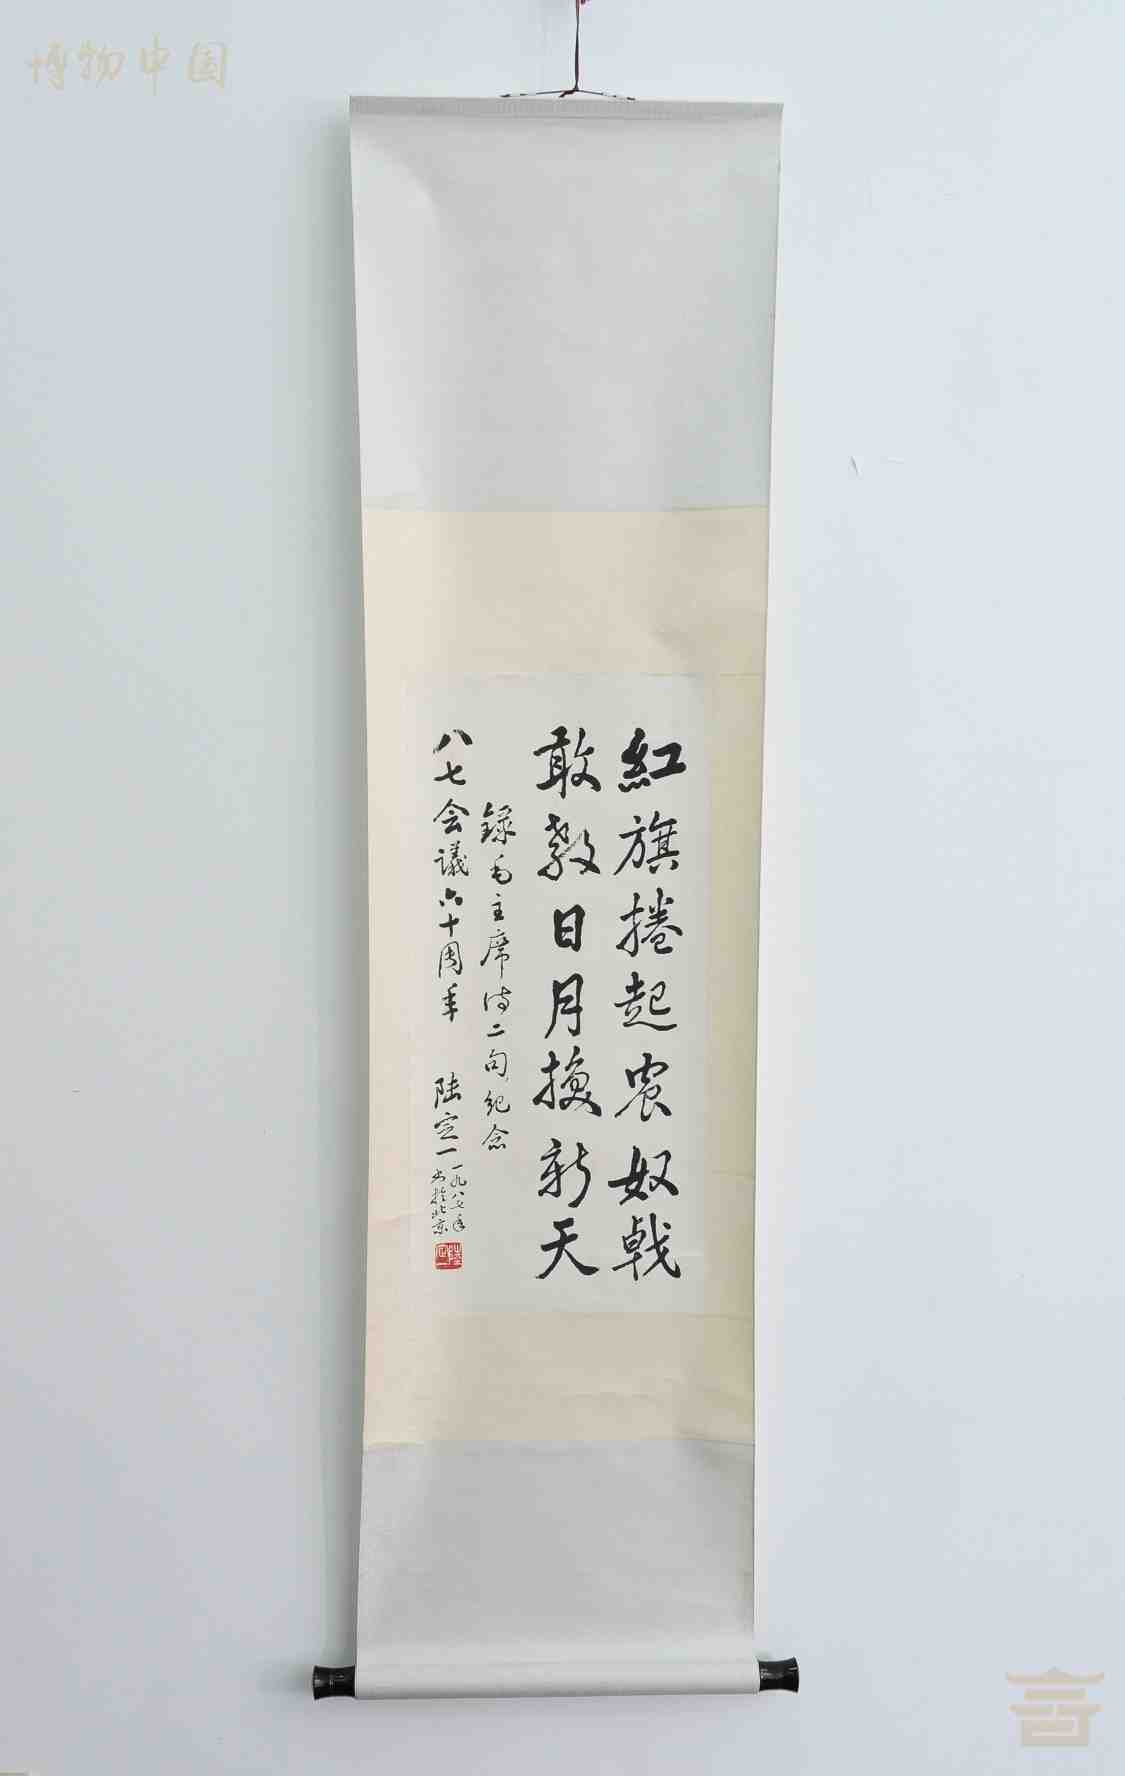 博物中国
紅旗捲起农奴戟
敢教日月換新天
錄毛主席诗二句，纪念
八七会議六十周年
陆定一
一九八七年
书於北京
陆定一